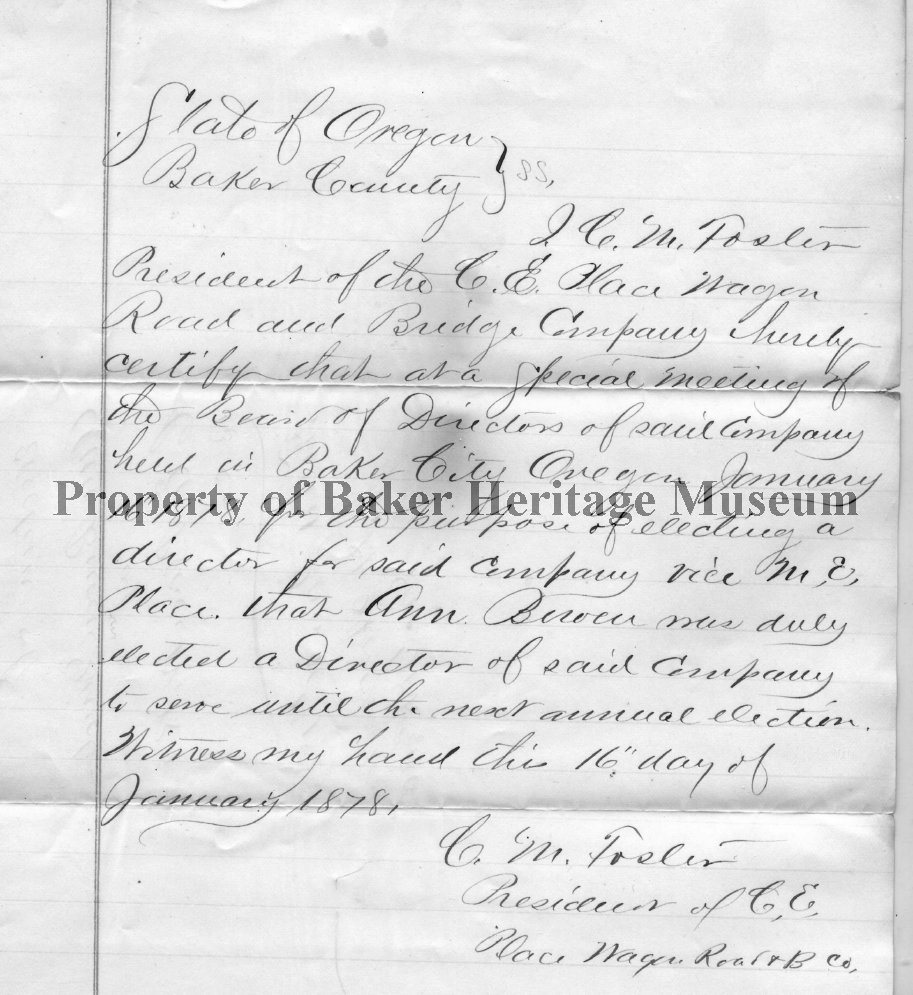 State of Oregon
Baker County } SS,
I C. M. Foster
President of the C. E. Place Wagon
Road and Bridge Company hereby
certify that at a special meeting of
the Board of Directors of said Company
held in Baker City Oregon January
Property of Baker Heritage Museum
16 1878. for the purpose of electing a
director for said Company vice M. E.
Place. that Ann. Bowen was duly
elected a Director of said Company
to serve until the next annual election.
Witness my hand this 16" day of
January 1878,
C. M. Foster
President of C. E.
Place Wagon Road & B Co,